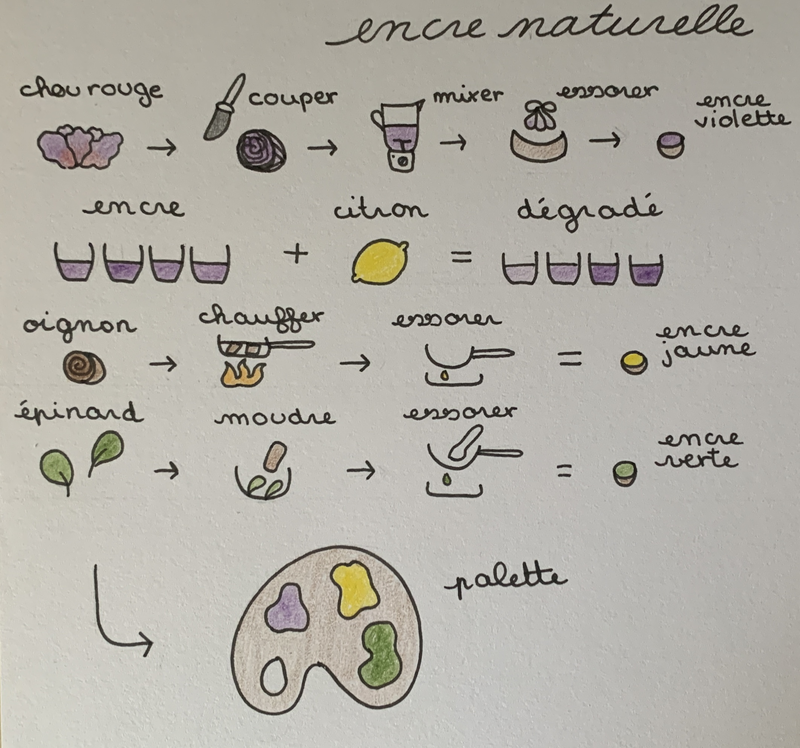 encre naturelle
chou rouge
couper
mixer
essorer
encre
violette
encre
+
citron
=
dégradé
oignon
chauffer
essorer
=
encre
jaune
épinard
moudre
essorer
=
encre
verte
palette